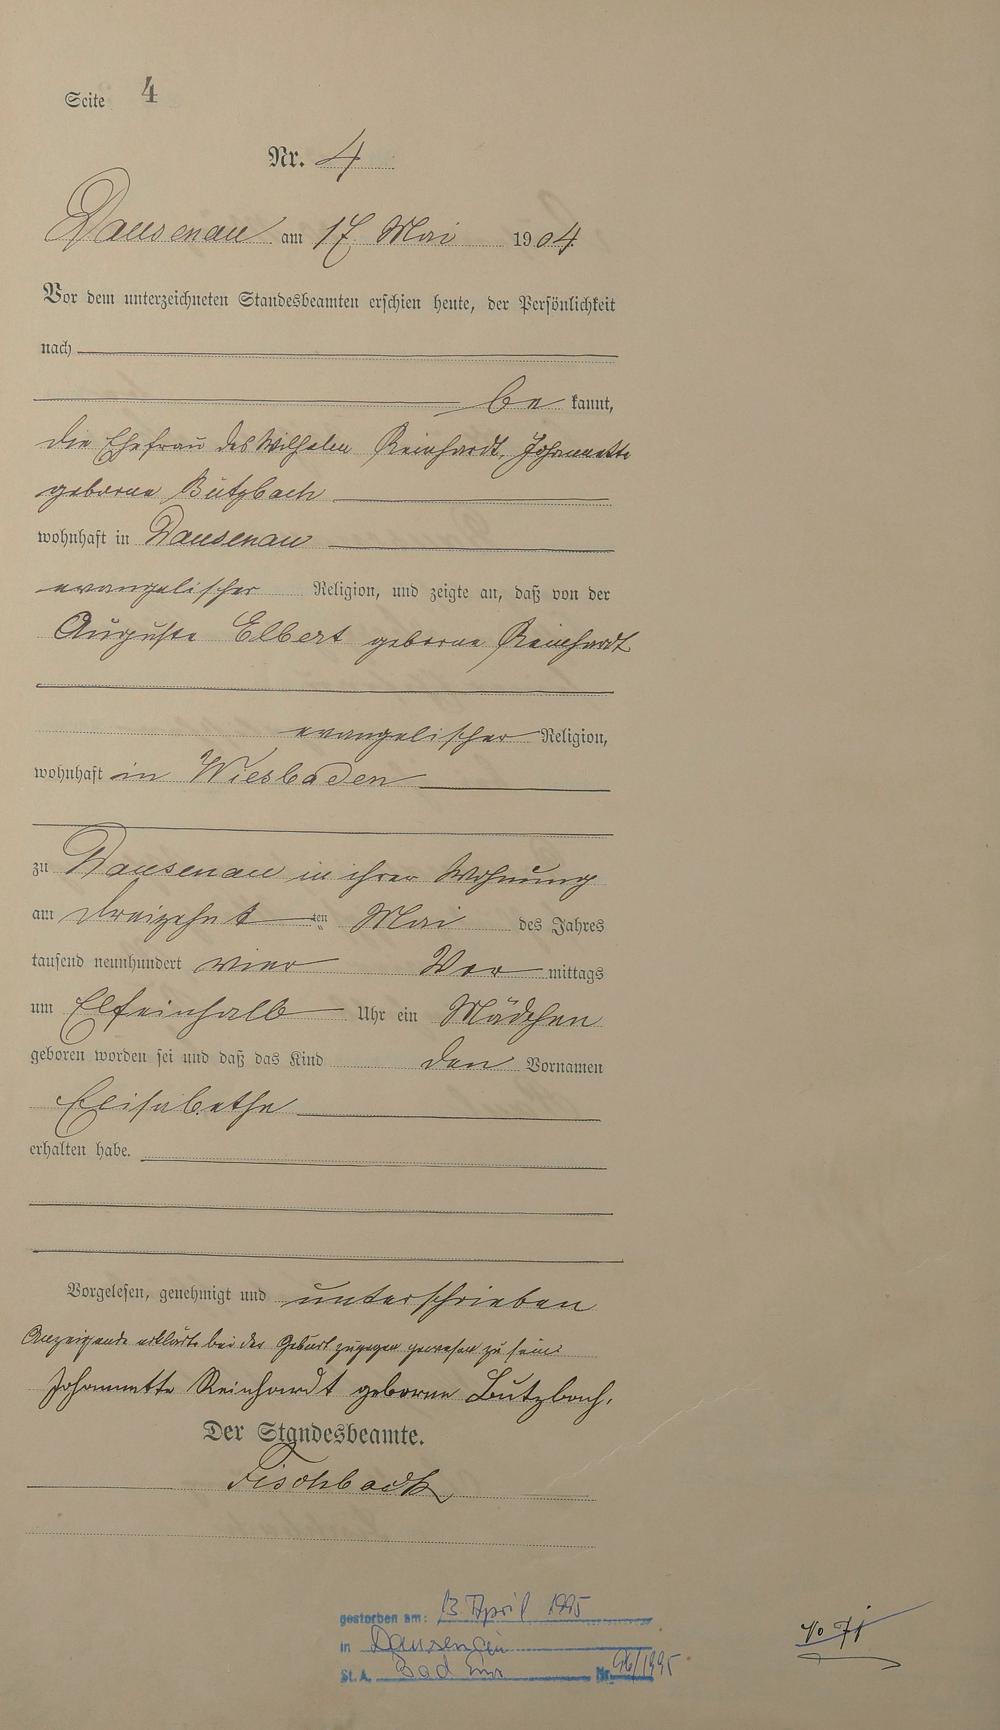 Seite 4
Nr. 4
Dausenau am 17. Mai 1904.
Vor dem unterzeichneten Standesbeamten erschien heute, der Persönlichkeit
nach
be kannt,
die Ehefrau des Wilhelm Reinhardt, Johannette
geborne Butzbach
wohnhaft in Dausenau
evangelischer Religion, und zeigte an, daß von der
Auguste Elbert geborne Reinhardt
evangelischer Religion,
wohnhaft in Wiesbaden
zu Dausenau in ihrer Wohnung
am dreizehnt ten Mai des Jahres
tausend neunhundert vier Vor mittags
um Elfeinhalb Uhr ein Mädchen
geboren worden sei und daß das Kind den Vornamen
Elisabetha
erhalten habe.
Vorgelesen, genehmigt und unterschrieben
Anzeigende erklärte bei der Geburt zugegen gewesen zu sein.
Johannette Reinhardt geborne Butzbach.
Der Standesbeamte.
Fischbach
gestorben am: 13. April 1995
in Dausenau
St.A. Bad Ems Nr. /1995